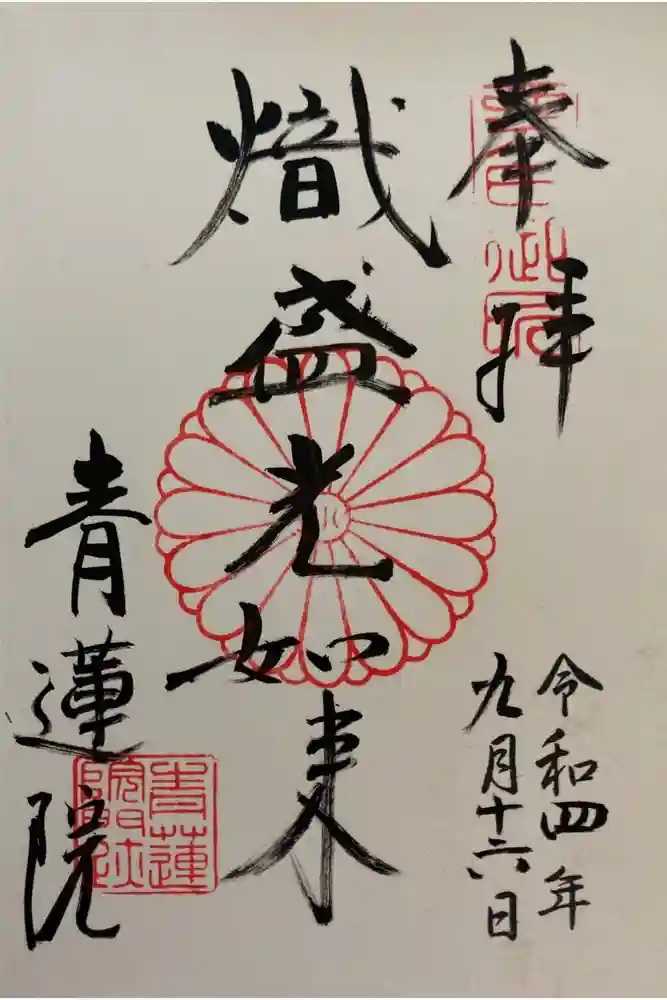 奉拝
令和四年
九月十六日
熾盛光如来
青蓮院
青蓮院門跡